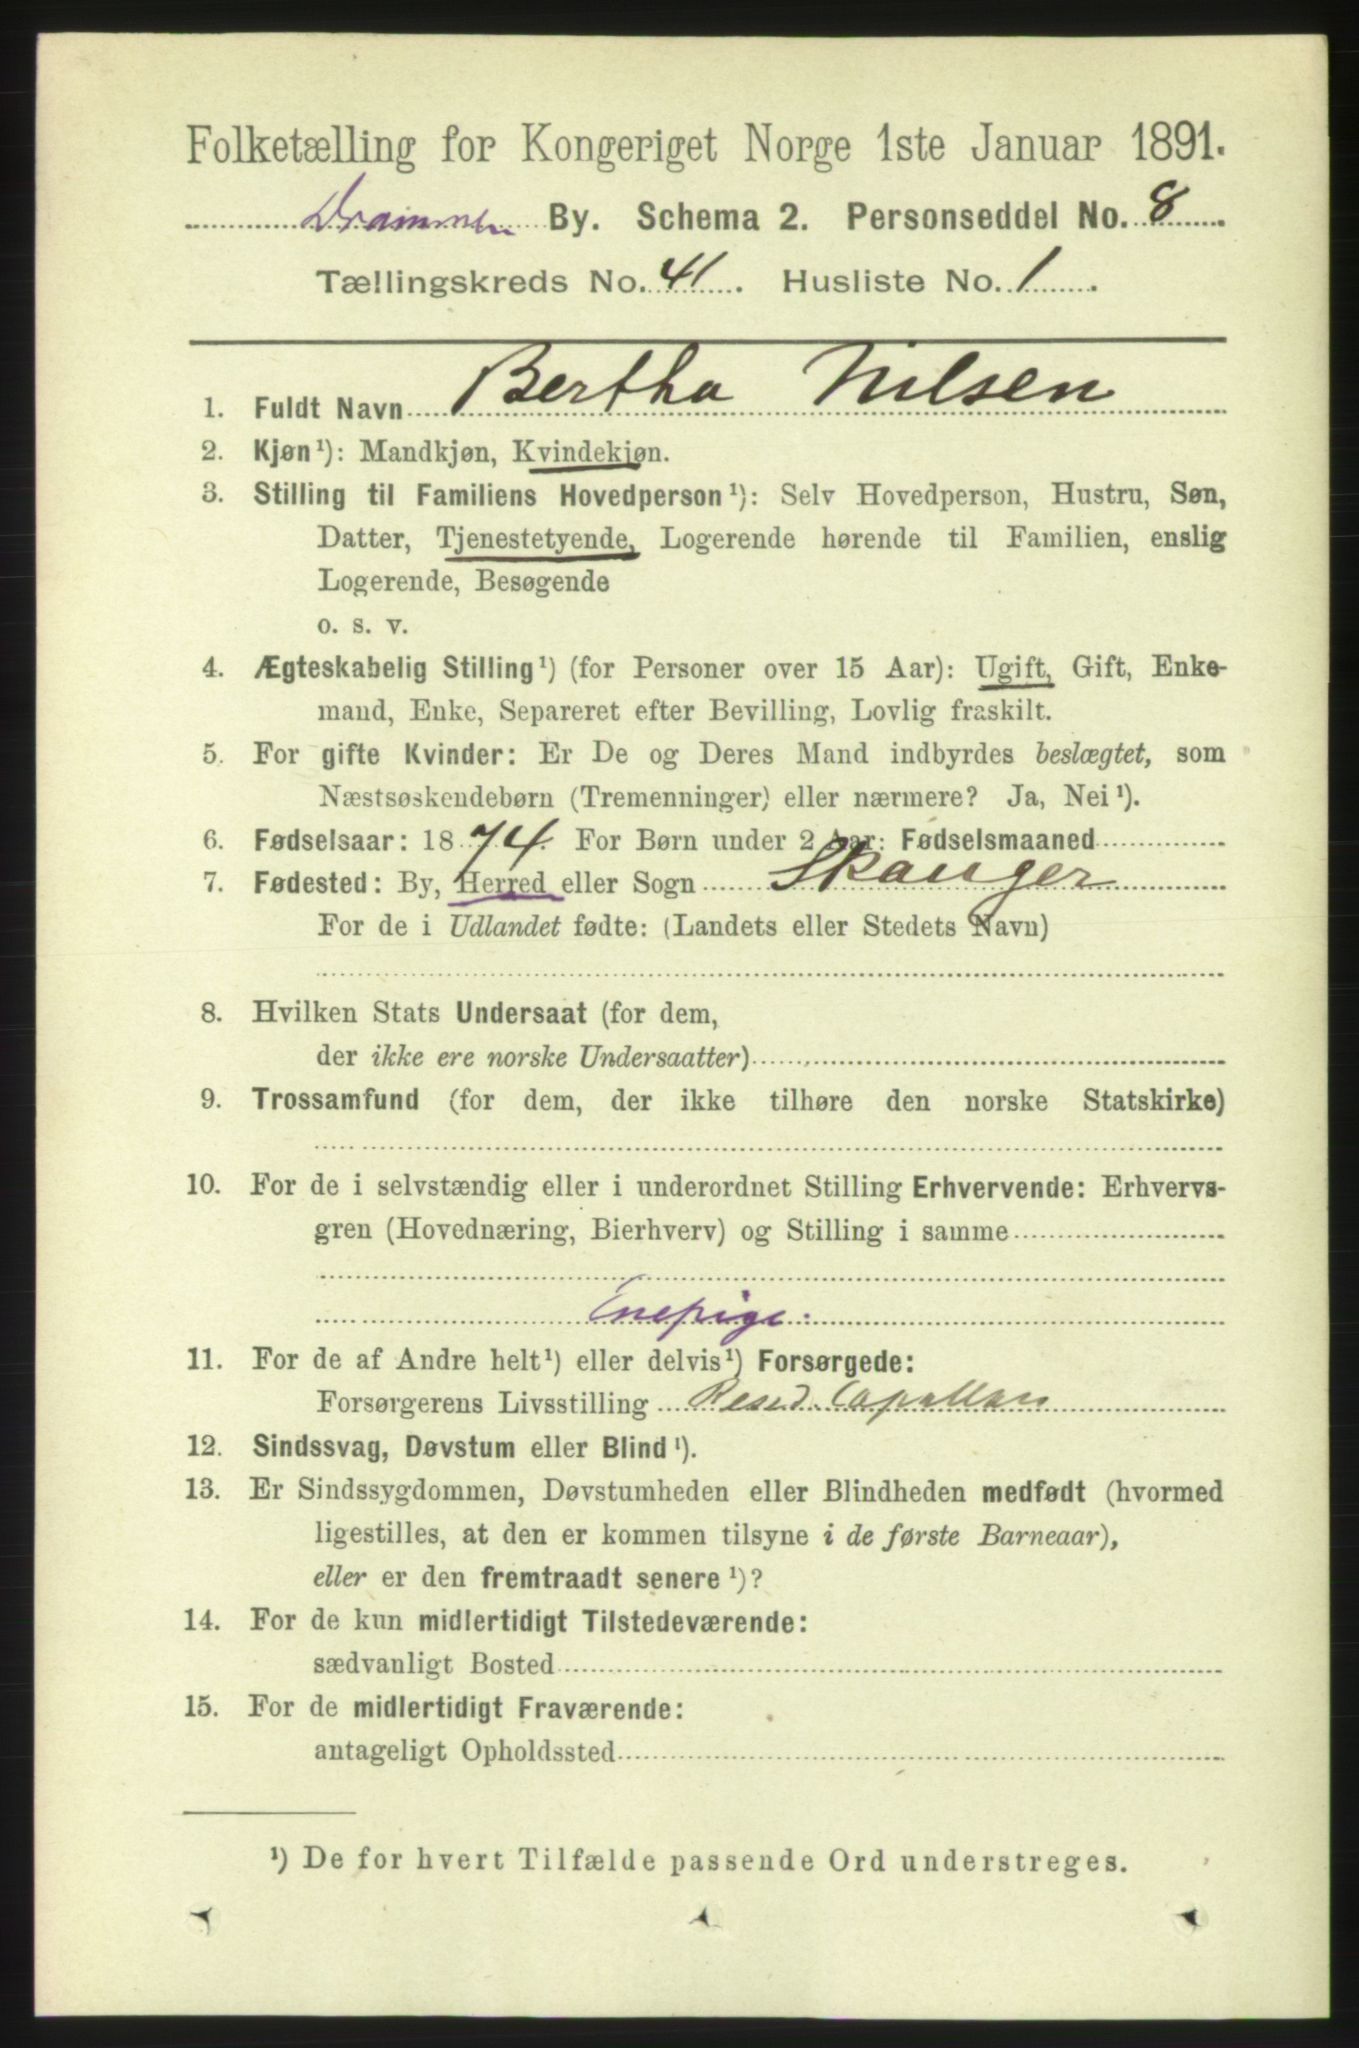 Folketælling for Kongeriget Norge 1ste Januar 1891.
Drammen By. Schema 2. Personseddel No. 8
Tællingskreds No. 41. Husliste No. 1.
1. Fuldt Navn Bertha Nilsen
2. Kjøn¹): Mandkjøn, Kvindekjøn.
3. Stilling til Familiens Hovedperson¹): Selv Hovedperson, Hustru, Søn,
Datter, Tjenestetyende, Logerende hørende til Familien, enslig
Logerende, Besøgende
o. s. v.
4. Ægteskabelig Stilling¹) (for Personer over 15 Aar): Ugift, Gift, Enke-
mand, Enke, Separeret efter Bevilling, Lovlig fraskilt.
5. For gifte Kvinder: Er De og Deres Mand indbyrdes beslægtet, som
Næstsøskendebørn (Tremenninger) eller nærmere? Ja, Nei¹).
6. Fødselsaar: 1874. For Børn under 2 Aar: Fødselsmaaned
7. Fødested: By, Herred eller Sogn Skauger
For de i Udlandet fødte: (Landets eller Stedets Navn)
8. Hvilken Stats Undersaat (for dem,
der ikke ere norske Undersaatter)
9. Trossamfund (for dem, der ikke tilhøre den norske Statskirke)
10. For de i selvstændig eller i underordnet Stilling Erhvervende: Erhvervs-
gren (Hovednæring, Bierhverv) og Stilling i samme
Enepige.
11. For de af Andre helt¹) eller delvis¹) Forsørgede:
Forsørgerens Livsstilling Resid. Capellan
12. Sindssvag, Døvstum eller Blind¹).
13. Er Sindssygdommen, Døvstumheden eller Blindheden medfødt (hvormed
ligestilles, at den er kommen tilsyne i de første Barneaar),
eller er den fremtraadt senere¹)?
14. For de kun midlertidigt Tilstedeværende:
sædvanligt Bosted
15. For de midlertidigt Fraværende:
antageligt Opholdssted
¹) De for hvert Tilfælde passende Ord understreges.